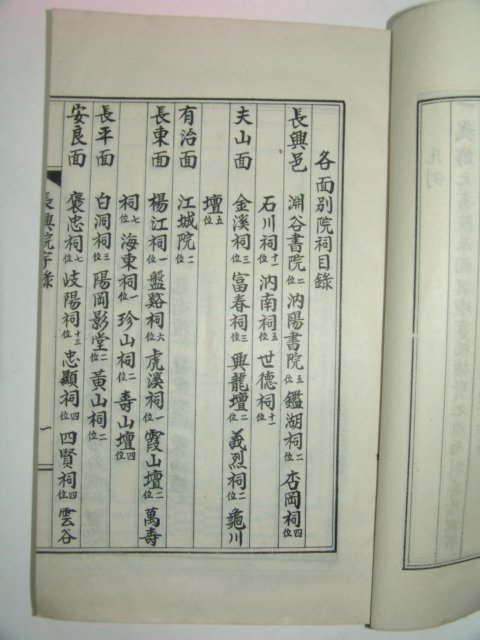 各面別院祠目錄
長興邑 淵谷書院二位 汭陽書院五位 鑑湖祠二位 杏岡祠四位
石川祠十一位 汭南祠五位 世德祠十一位
夫山面 金溪祠三位 富春祠三位 興龍壇二位 義烈祠二位 龜川
壇五位
有治面 江城院二位
長東面 楊江祠一位 盤谿祠六位 虎溪祠一位 霞山壇二位 萬壽
祠七位 海東祠一位 珍山祠二位 壽山壇四位
長平面 白洞祠三位 陽岡影堂二位 黃山祠二位
安良面 褒忠祠七位 岐陽祠十三位 忠顯祠四位 四賢祠四位 雲谷
長興院宇錄 一
凡例